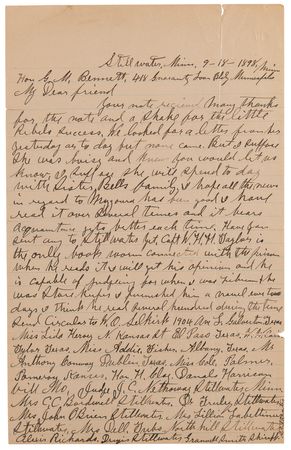 Stillwater, Minn, 9-18-1898,
Hon G. M. Bennett, 418 Guaranty Loan Bldg Minneapolis Minn
My Dear friend
Your note recieved Many thanks
for the note and a Shake for the little
Rebels success. We looked for a letter from her
yesterday or to day but none came. But I suppose
she was busy and knew you would let us
know, I suppose she will spend to day
with Sister Bells Family, I hope all the news
in regard to has been good I have
read it over several times and it bears
acquantance better each time. Have you
sent any to Stillwater yet, Capt W. H. H. Taylor is
the only book worm connected with the prison
when he reads it I will get his opinion and he
is capable of judgeing for when he was
was State I furnished him a novel
days I think he read several hundred during the time
Send Circular to W. O. Selkirk 1904 St Galveston Texas
Miss Lido N. Kansas St El Paso Texas,
Tyler Texas, Miss Addie Fisher, Albany, Texas, Mr
Anthony Dublin Texas, Miss Cole Palmer,
Kansas, Hon H. Clay Daniel Harrison
ville Mo, Judge J. C. Nethaway Stillwater, Minn
Mrs C C Stillwater, Stillwater,
Mrs John O'Brien Stillwater, Mrs Lillian
Stillwater, Mrs Dell North hill Stillwater
Alvin Richards, Stillwater